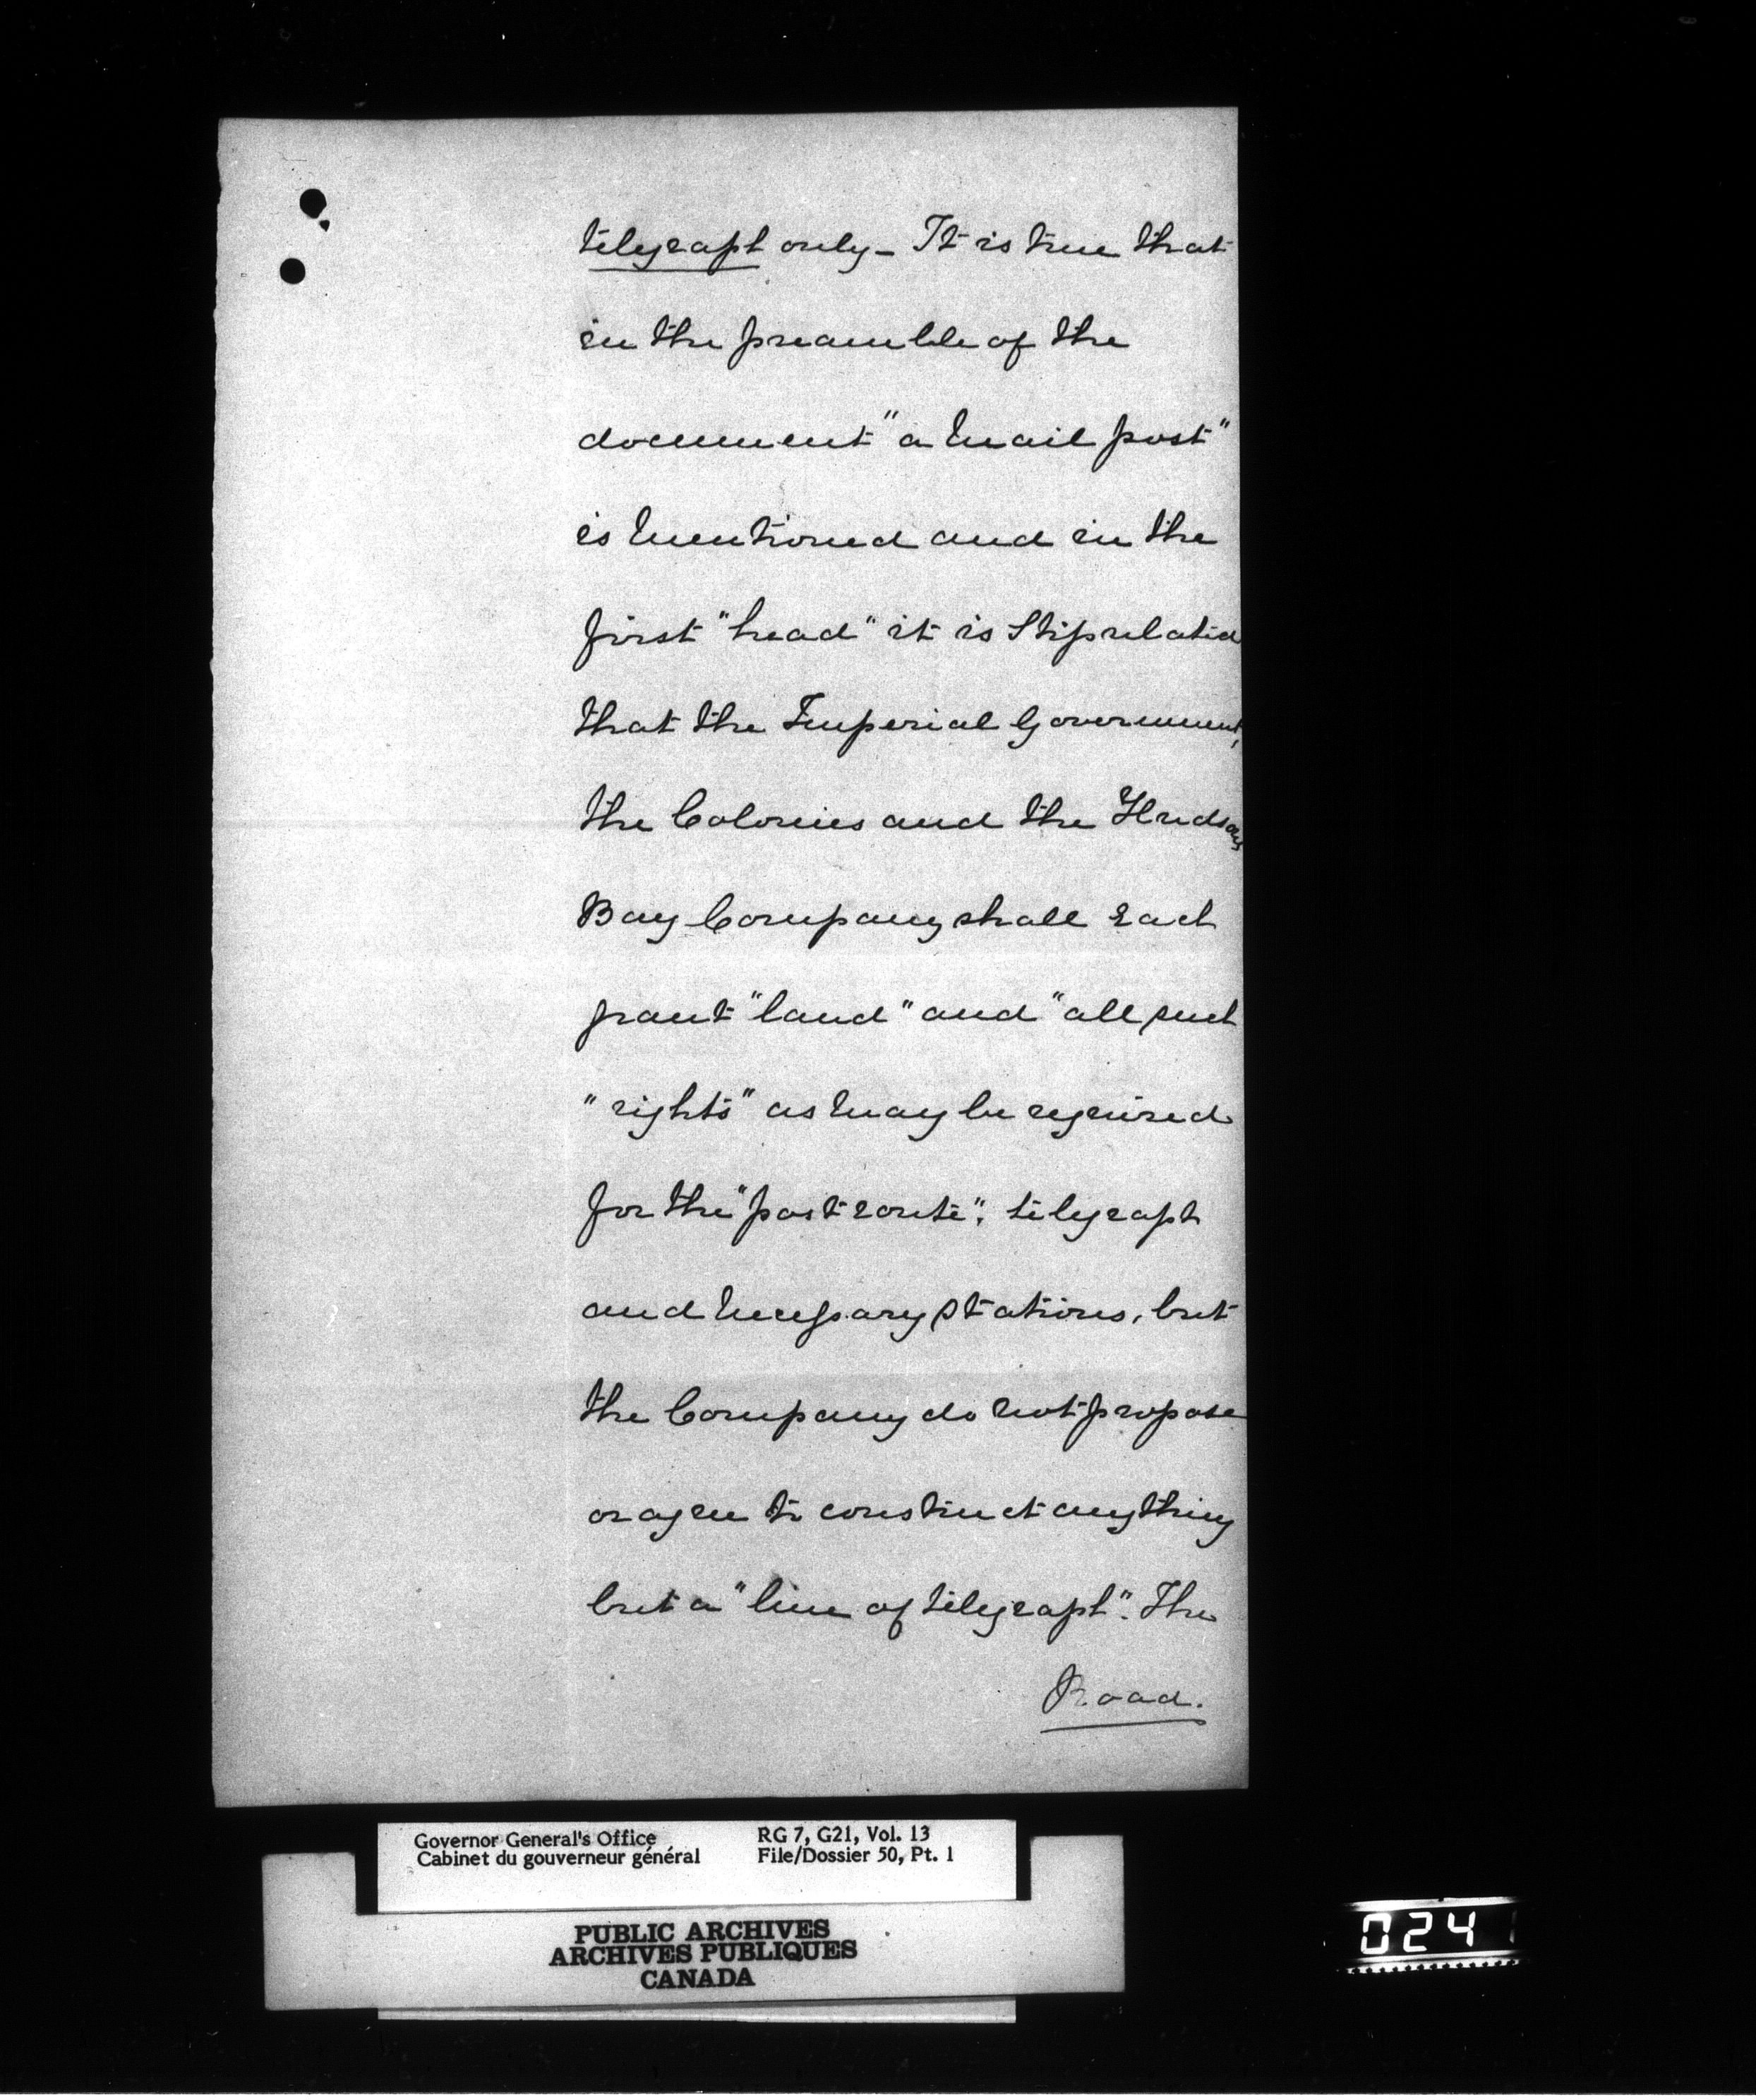 telegraph only – It is true that
in the preamble of the
document "a mail post"
is mentioned and in the
first "head" it is stipulated
that the Imperial Government,
the Colonies and the Hudsons
Bay Company shall each
grant "land" and "all such
"rights" as may be required
for the "post route", telegraph
and necessary stations, but
the Company do not propose
or agree to construct anything
but a "line of telegraph". The
Road.
Governor General's Office
Cabinet du gouverneur général
RG 7, G21, Vol. 13
File/Dossier 50, Pt. 1
PUBLIC ARCHIVES
ARCHIVES PUBLIQUES
CANADA
024